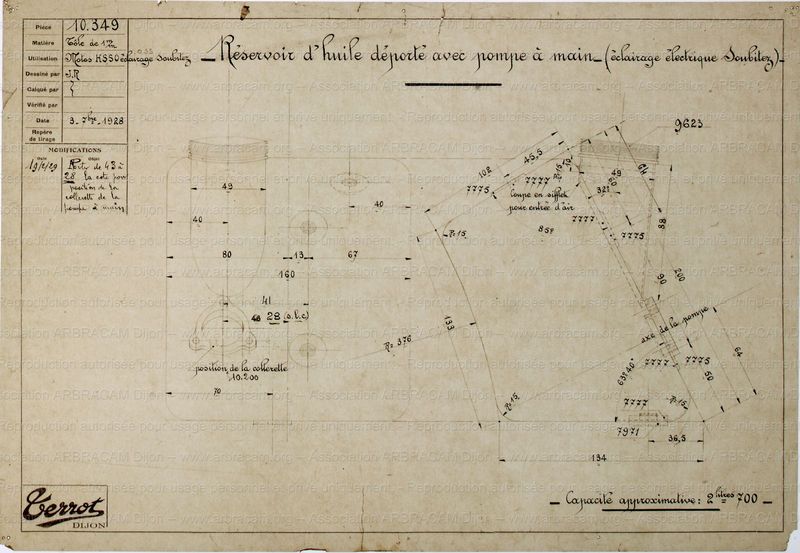 Pièce 10.349
Matière Tôle de
Utilisation Motos HSSO éclairage Soubitez
Dessiné par J.R
Calqué par
Vérifié par
Date 3_7bre_1928
Repère de tirage
MODIFICATIONS
Date Objet
19/2/29 Porter de 43 à
28 la cote pour
position de la
collerette de la
pompe à main
_Réservoir d'huile déporté avec pompe à main_(éclairage électrique Soubitez)_
9623
102 45,5
7775 7777
Coupe en sifflet
pour entrée d'air
858
49
32
7777
7775
88
90
200
49
40
40
80 13 67
160
41
28 (s.l.c)
R=15
133
R=376
axe de la pompe
7777 7775
63°40'
50
64
position de la collerette
10.200
70
R=15
7777
R=15
7971
36,5
134
_Capacité approximative: 2 litres 700_
Terrot
DIJON
Reproduction autorisée pour usage personnel et uniquement
Association ARBRACAM Dijon – www.arbracam.org